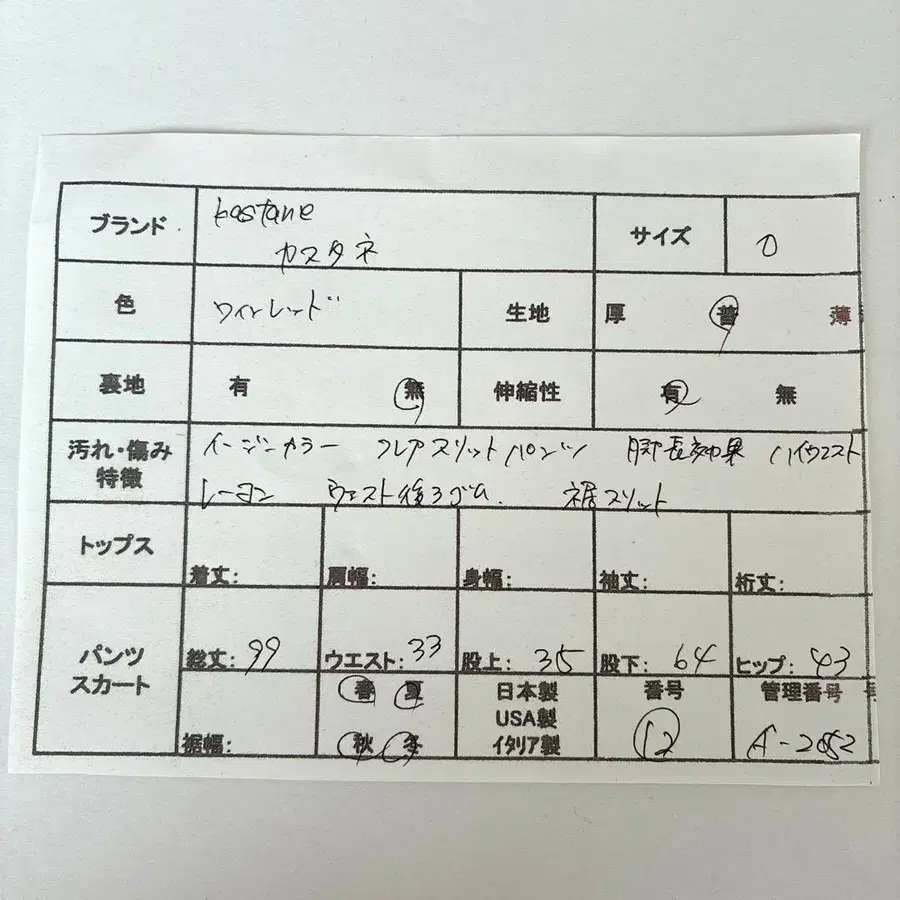 ブランド kastane サイズ 0
カスタネ
色 ワインレッド 生地 厚 普 薄
裏地 有 無 伸縮性 有 無
汚れ・傷み イージーカラー フレアスリットパンツ 脚長効果 ハイウエスト
特徴 レーヨン ウエスト後ろゴム. 裾スリット
トップス 着丈: 肩幅: 身幅: 袖丈: 裄丈:
パンツ 総丈: 99 ウエスト: 33 股上: 35 股下: 64 ヒップ: 43
スカート 春 夏 日本製 番号 管理番号
USA製
裾幅: 秋 冬 イタリア製 12 A-2052